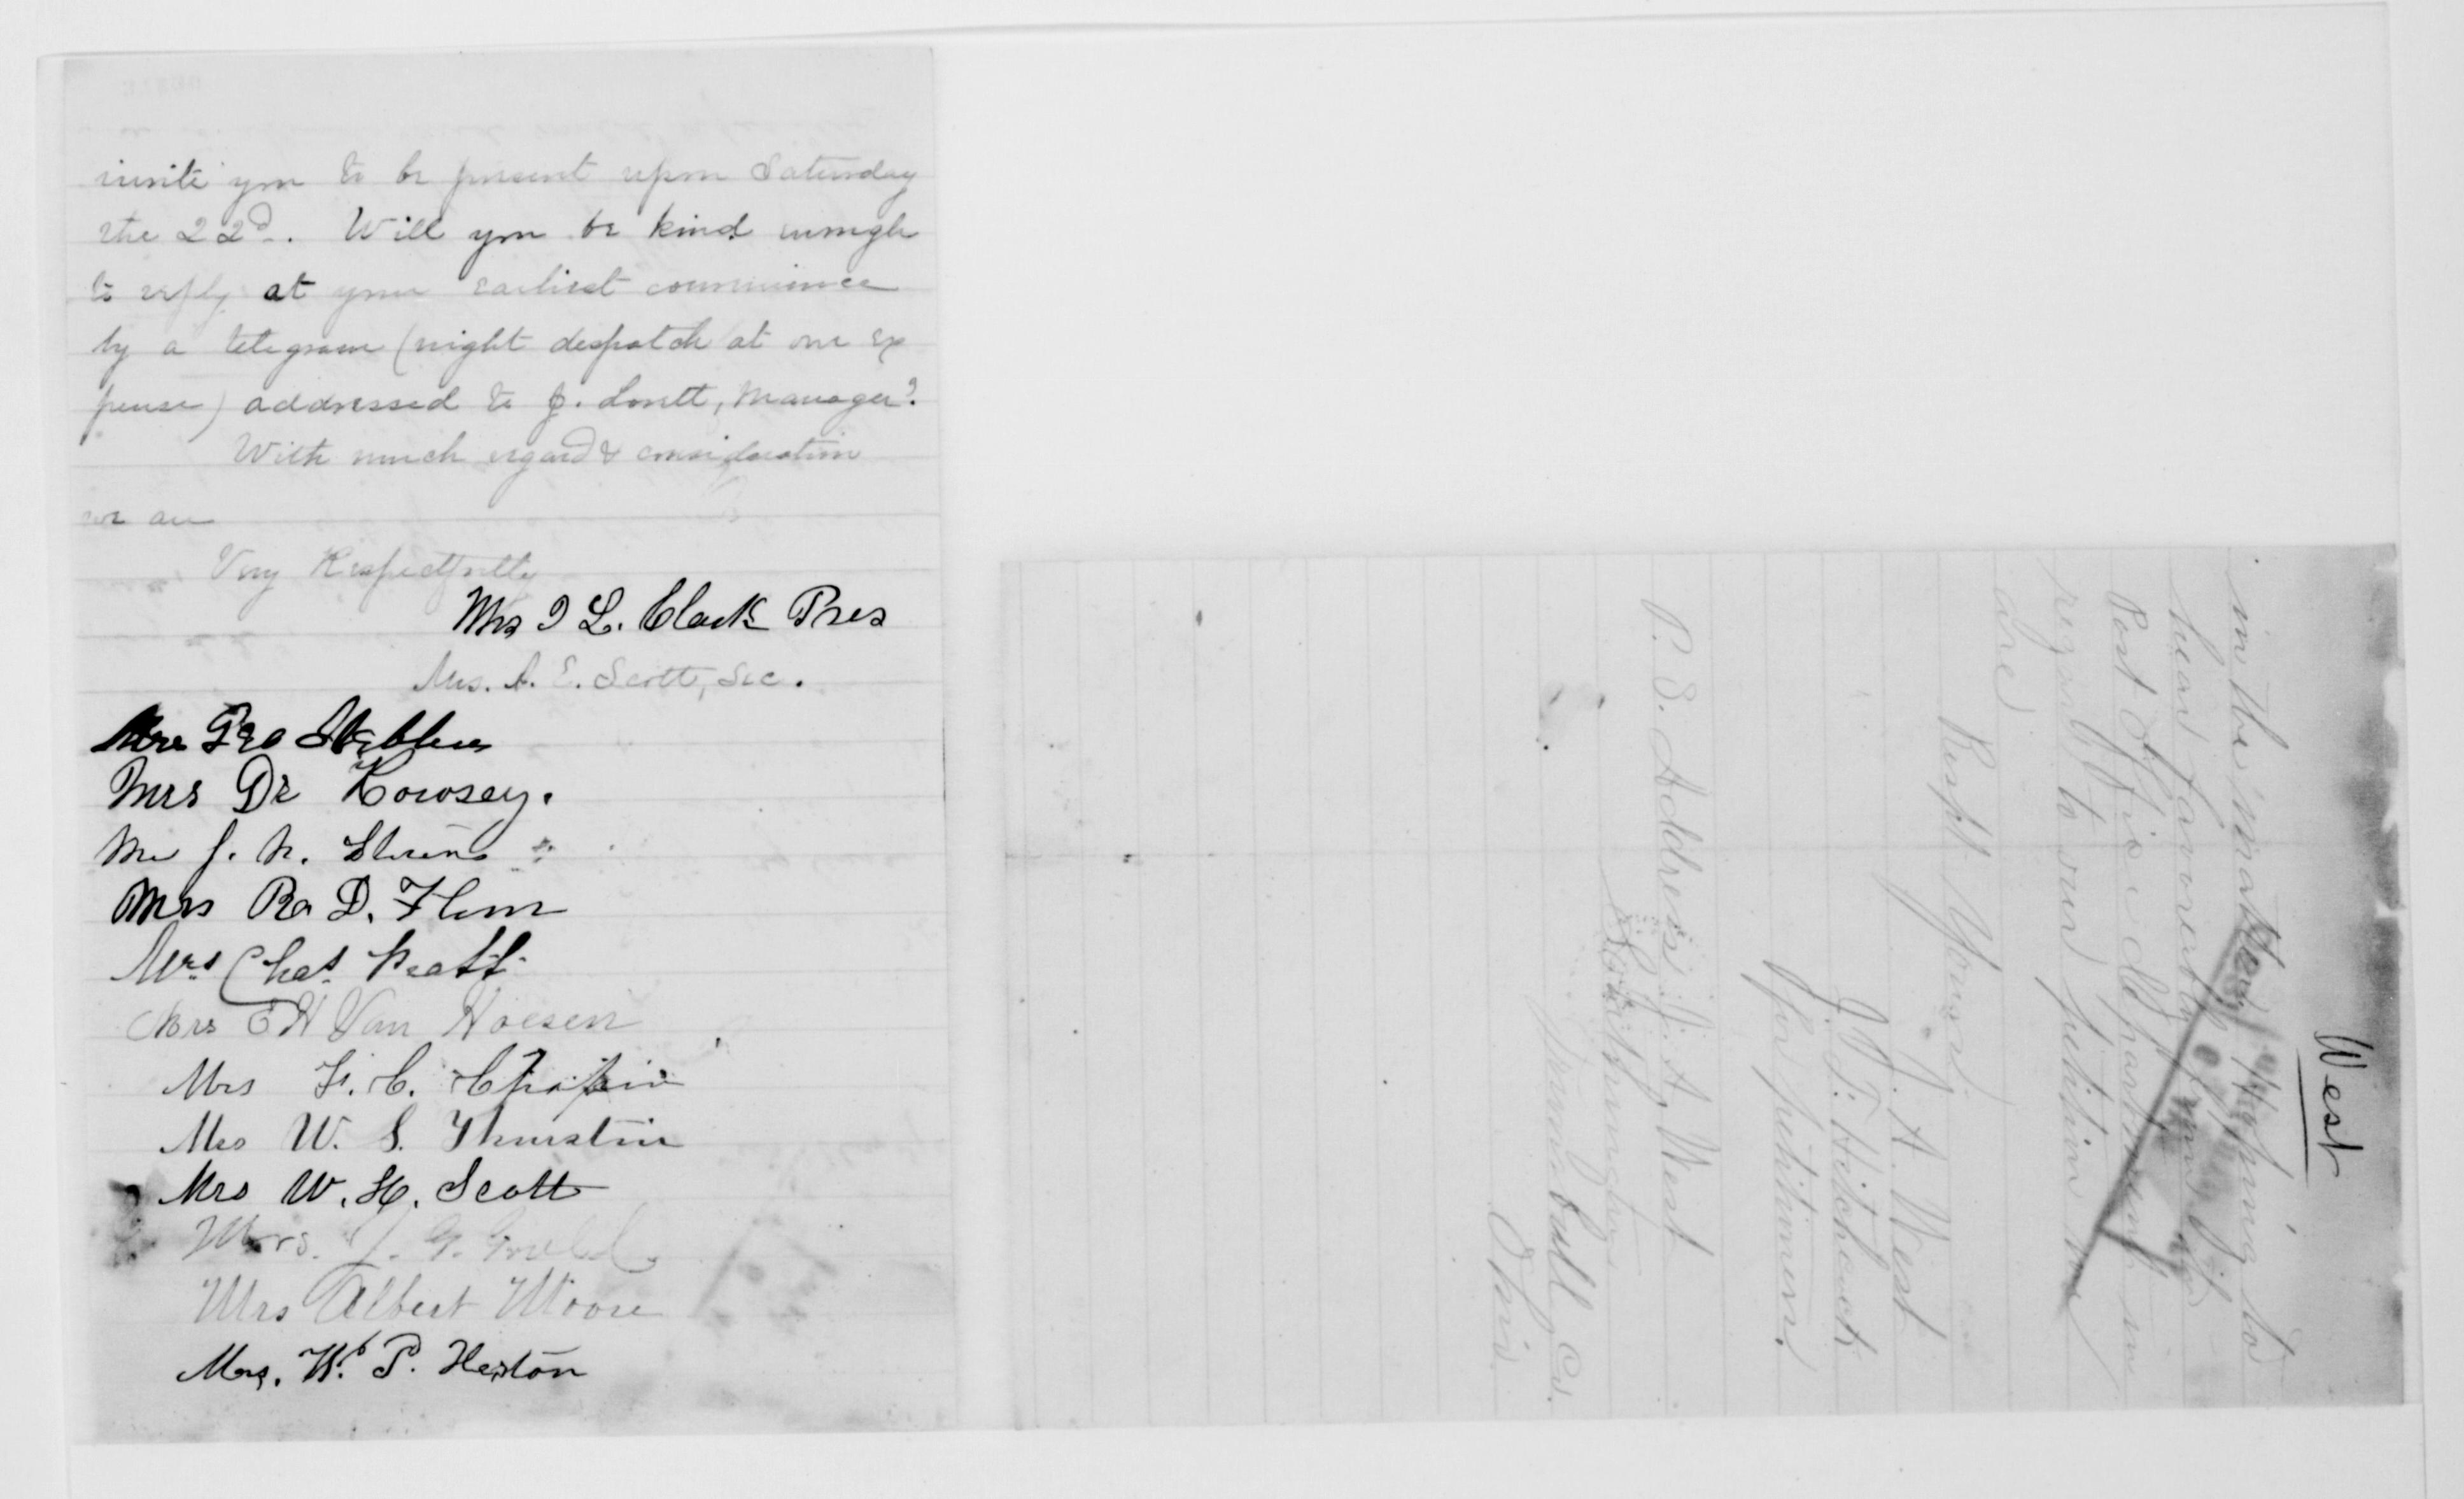 invite you to be present upon Saturday
the 22d. Will you be kind enough
to reply at your earliest convenience
by a telegram (night despatch at our ex
pense) addressed to J. Lovett, Manager?
With much regard & consideration
we are
Very Respectfully
Mrs I L. Clark Pres
Mrs. A. E. Scott, Sec.
Mrs Geo Stebbins
Mrs Dr Howsey.
Mrs J. N. Stevens
Mrs Ro D. Flem
Mrs Chas. Pratt
Mrs E H Van Hoesen
Mrs F. C. Chapin
Mrs W. S. Thurstin
Mrs W. H. Scott
Mrs. J. G. Gould
Mrs Albert Moore
Mrs. Wm P. Heston
West
in the matter hoping to
hear favorably from
Post Office department in
regard to our petition
are
Respt Yours
J. A. West
J. T. Hitchcock
for petitioners.
P. O. Address J. A. West
Southington
Trumbull Co.
Ohio